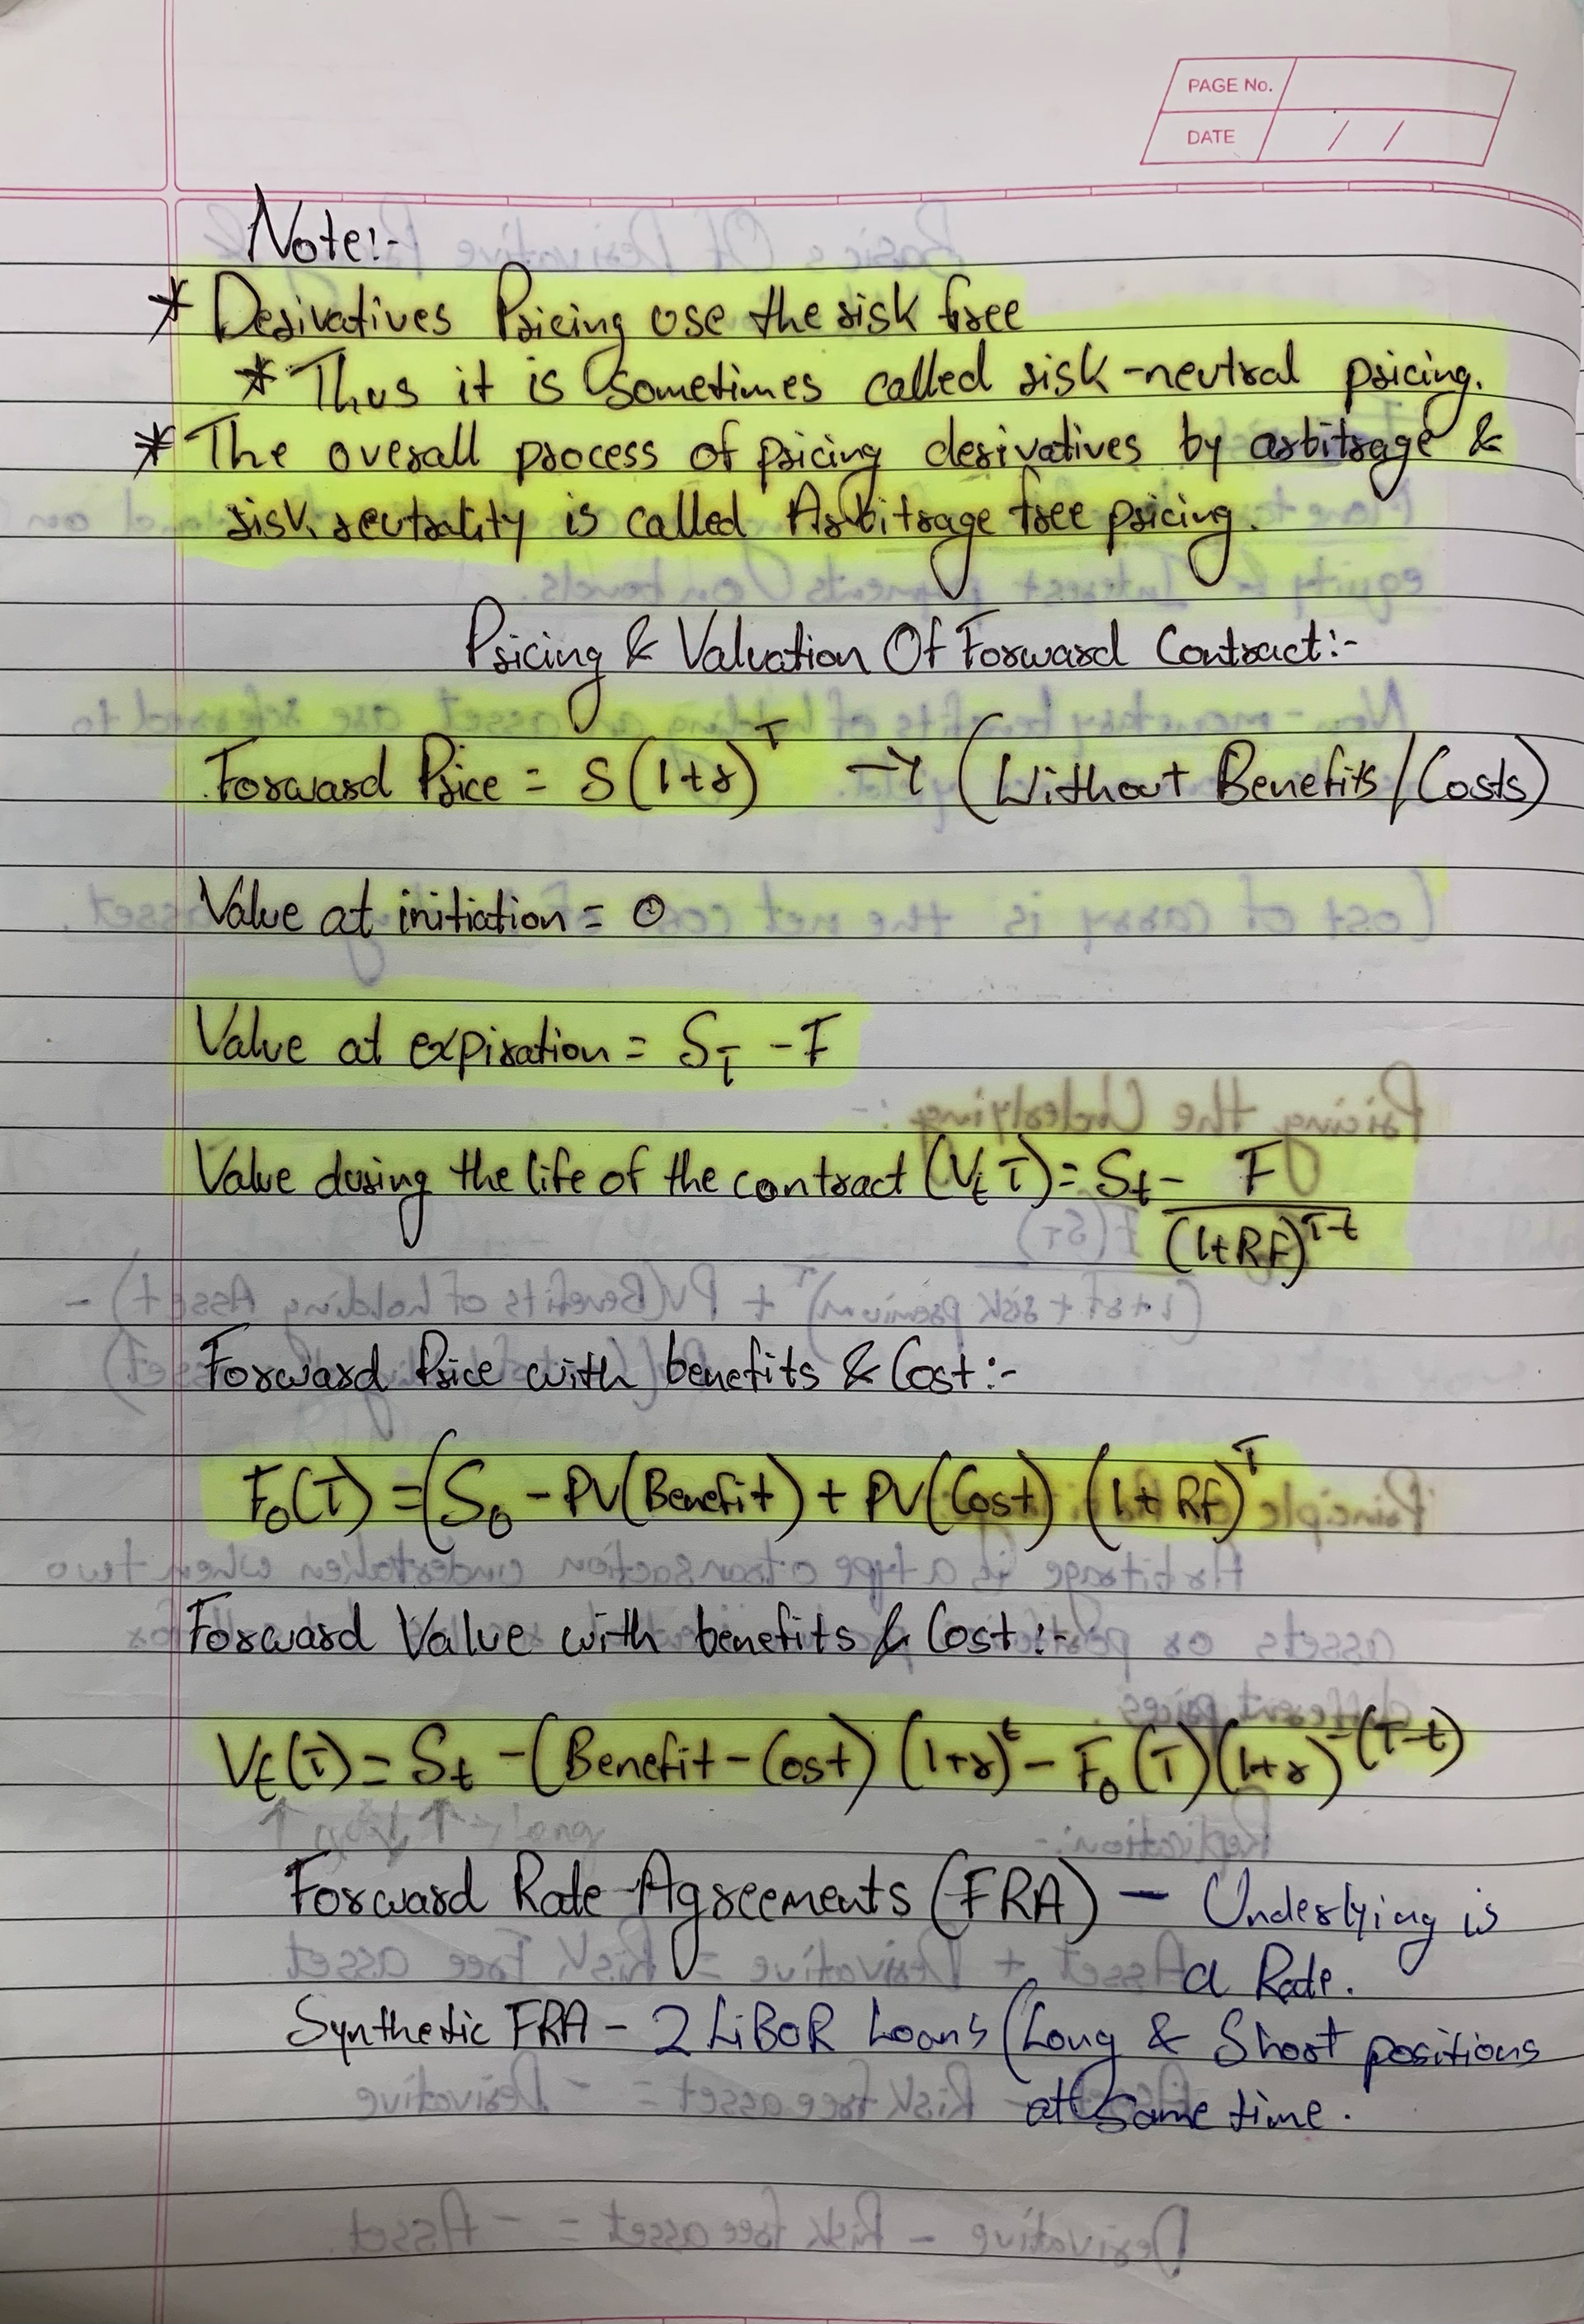 PAGE No.
DATE / /
Note:-
* Derivatives Pricing use the risk free
* Thus it is sometimes called risk-neutral pricing.
* The overall process of pricing derivatives by arbitrage &
risk neutrality is called Arbitrage free pricing.
Pricing & Valuation Of Forward Contract:-
Forward Price = S(1+r)^T → (Without Benefits/Costs)
Value at initiation = 0
Value at expiration = S_T - F
Value during the life of the contract (V_t T) = S_t - F / (1+RF)^T-t
Forward Price with benefits & Cost:-
F_0(T) = (S_0 - PV(Benefit) + PV(Cost) (1+RF)^T
Forward Value with benefits & Cost:-
V_t(T) = S_t - (Benefit - Cost) (1+r)^t - F_0(T)(1+r)^-(T-t)
Forward Rate Agreements (FRA) - Underlying is
a Rate.
Synthetic FRA - 2 LiBOR Loans (Long & Short positions
at same time.